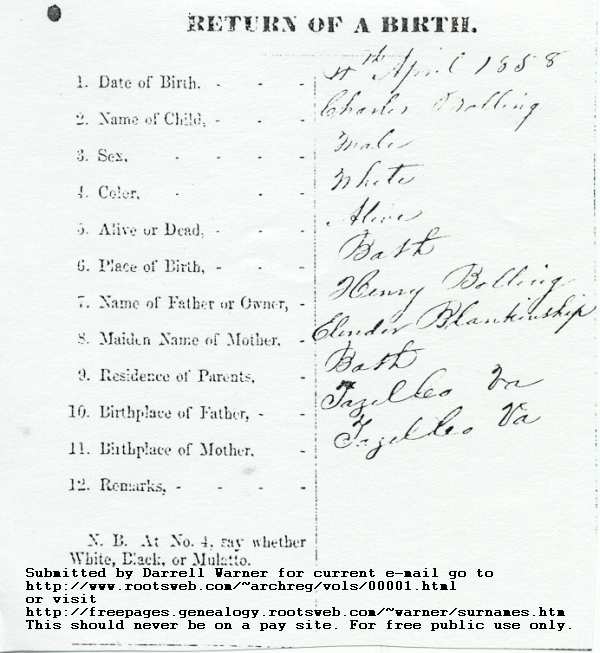 RETURN OF A BIRTH.
1. Date of Birth, - - - 4th April 1858
2. Name of Child, - - - Charles Bolling
3. Sex, - - - - Male
4. Color, - - - White
5. Alive or Dead, - - - Alive
6. Place of Birth, - - - Bath
7. Name of Father or Owner, - Henry Bolling
8. Maiden Name of Mother, - Elender Blankinship
9. Residence of Parents, - Bath
10. Birthplace of Father, - - Tazell Co Va
11. Birthplace of Mother, - Tazell Co Va
12. Remarks, - - - -
N. B. At No. 4, say whether
White, Black, or Mulatto.
Submitted by Darrell Warner for current e-mail go to
http://www.rootsweb.com/~archreg/vols/00001.html
or visit
http://freepages.genealogy.rootsweb.com/~warner/surnames.htm
This should never be on a pay site. For free public use only.